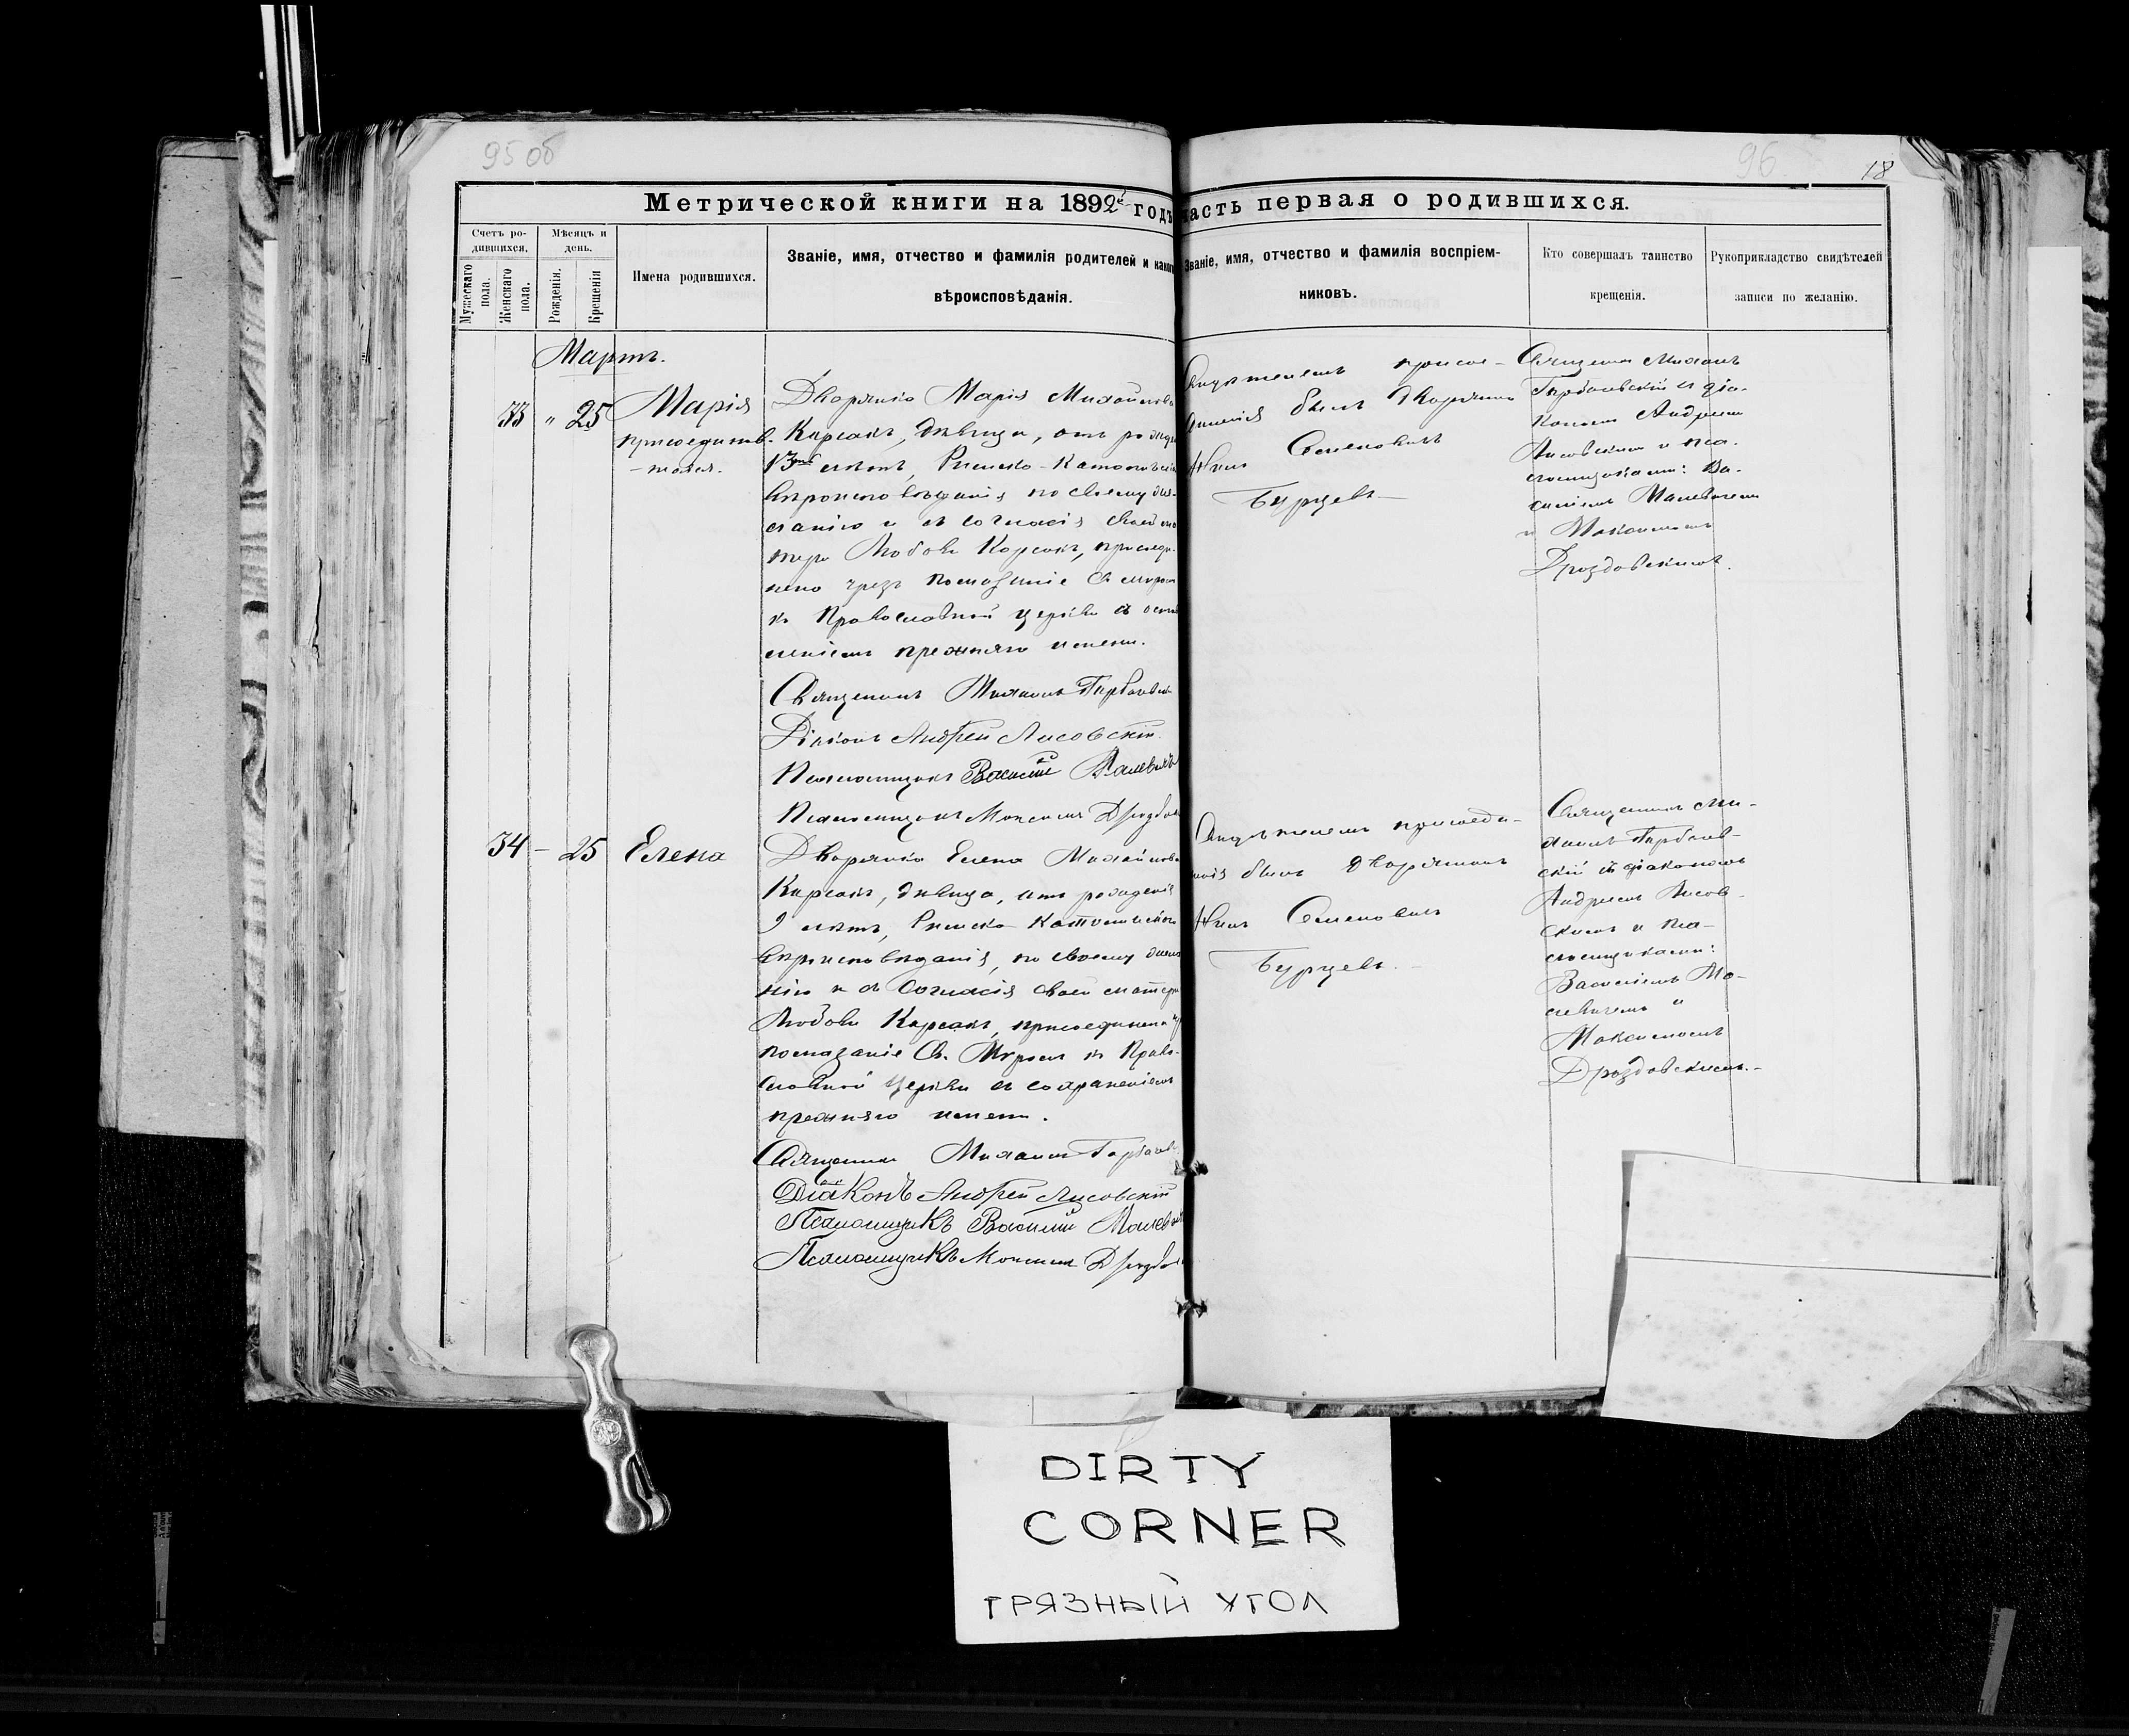 95 об
96
18
Метрической книги на 1892й годъ
часть первая о родившихся.
Счетъ ро-
дившихся.
Мужескаго пола.
Женскаго пола.
Мѣсяцъ и
день.
Рожденія.
Крещенія
Имена родившихся.
Званіе, имя, отчество и фамилія родителей и какого
вѣроисповѣданія.
Званіе, имя, отчество и фамилія воспріем-
никовъ.
Кто совершалъ таинство
крещенія.
Рукоприкладство свидѣтелей
записи по желанію.
Мартъ.
33 " 25
Марія
присоединив-
шаяся.
Дворянка Марія Михайлова
Карсакъ, дѣвица, отъ рожде
13 лѣтъ, Римско-Католическа
вѣроисповѣданія по своему же-
ланію и съ согласія своей ма
тери Любови Карсакъ, присоеди-
нена чрезъ помазаніе Св. мѵромъ
къ Православной церкви съ остав
леніемъ прежняго имени.
Священникъ Михаилъ
Діаконъ Андрей Лисовскій.
Псаломщикъ Василій Малевичъ
Псаломщикъ Максимъ Дроздов
присое-
диненія былъ дворянинъ
Семеновичъ
Бурцевъ
Священникъ Михаилъ
и діа-
кономъ Андреемъ
Лисовскимъ и пса-
ломщиками: Ва-
силіемъ Малевичемъ
и Максимомъ
Дроздовскимъ.
34 - 25
Елена
Дворянка Елена Михайлова
Карсакъ, дѣвица, отъ рожденія
9 лѣтъ, Римско-Католическаго
вѣроисповѣданія, по своему жела
нію и съ согласія своей матери
Любови Карсакъ, присоединена
помазаніе Св. Мѵромъ къ Право-
славной Церкви съ сохраненіемъ
прежняго имени.
Священникъ Михаилъ
Діаконъ Андрей Лисовскій
Псаломщикъ Василій Малевич
Псаломщикъ Максимъ Дроздов
присоеди-
ненія былъ дворянинъ
Семеновичъ
Бурцевъ.
Священникъ Ми-
хаилъ
скій съ діакономъ
Андреемъ Лисов-
скимъ и пса-
ломщиками:
Василіемъ Ма-
левичемъ и
Максимомъ
Дроздовскимъ.
DIRTY
CORNER
ГРЯЗНЫЙ УГОЛ